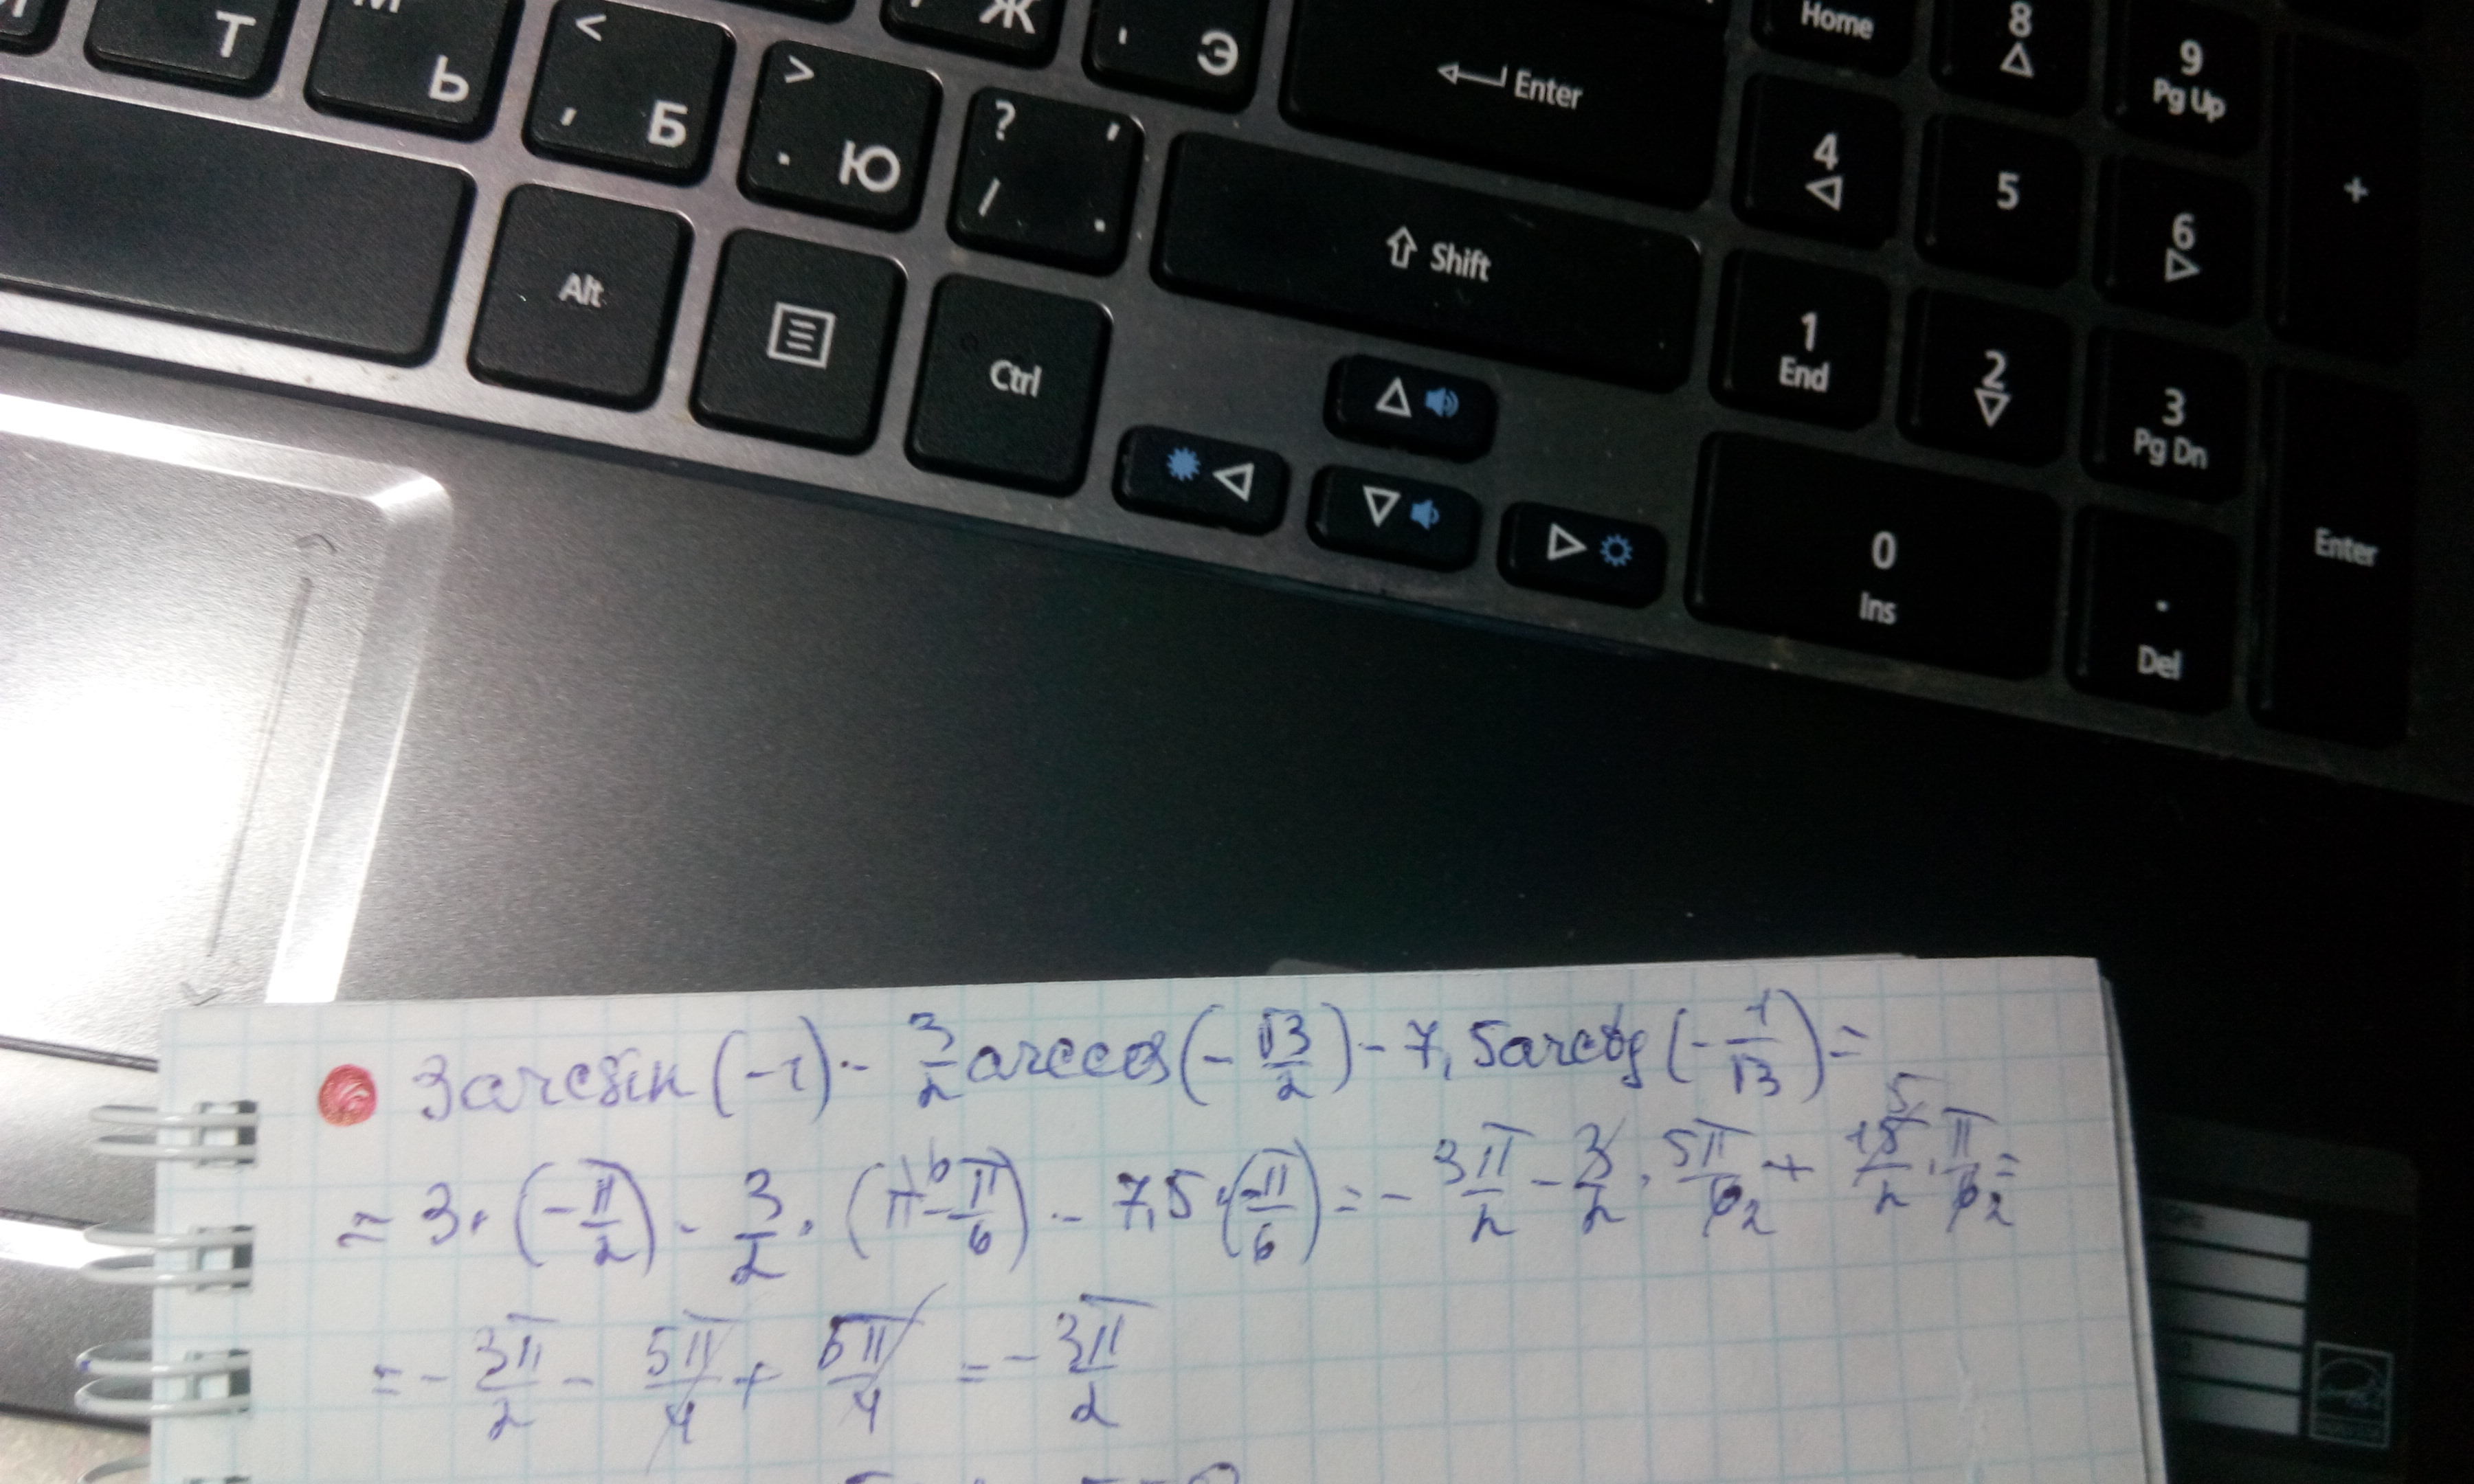 Т Ь < , Б > . Ю ? , / . Ж , Э
Enter
Home 8 9 Pg Up
4 5 6 +
Alt Ctrl Shift
1 End 2 3 Pg Dn
0 Ins . Del Enter
3arcsin(-1) - 3/2 arccos(-√3/2) - 7,5arctg(-1/√3) =
= 3·(-π/2) - 3/2·(π - π/6) - 7,5·(-π/6) = - 3π/2 - 3/2 · 5π/6 2 + 15/2 5 · π/6 2 =
= - 3π/2 - 5π/4 + 5π/4 = - 3π/2